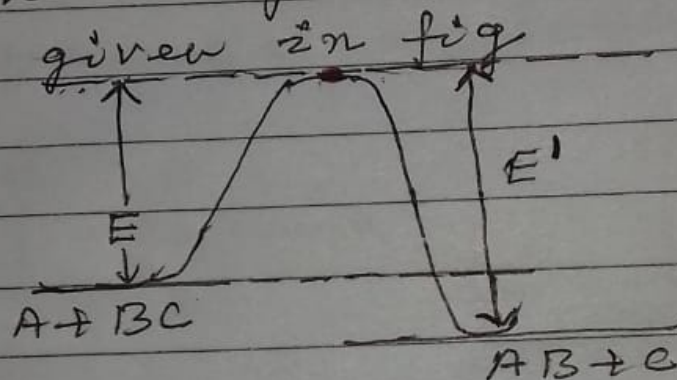 given in fig
E
E'
A + BC
AB + C